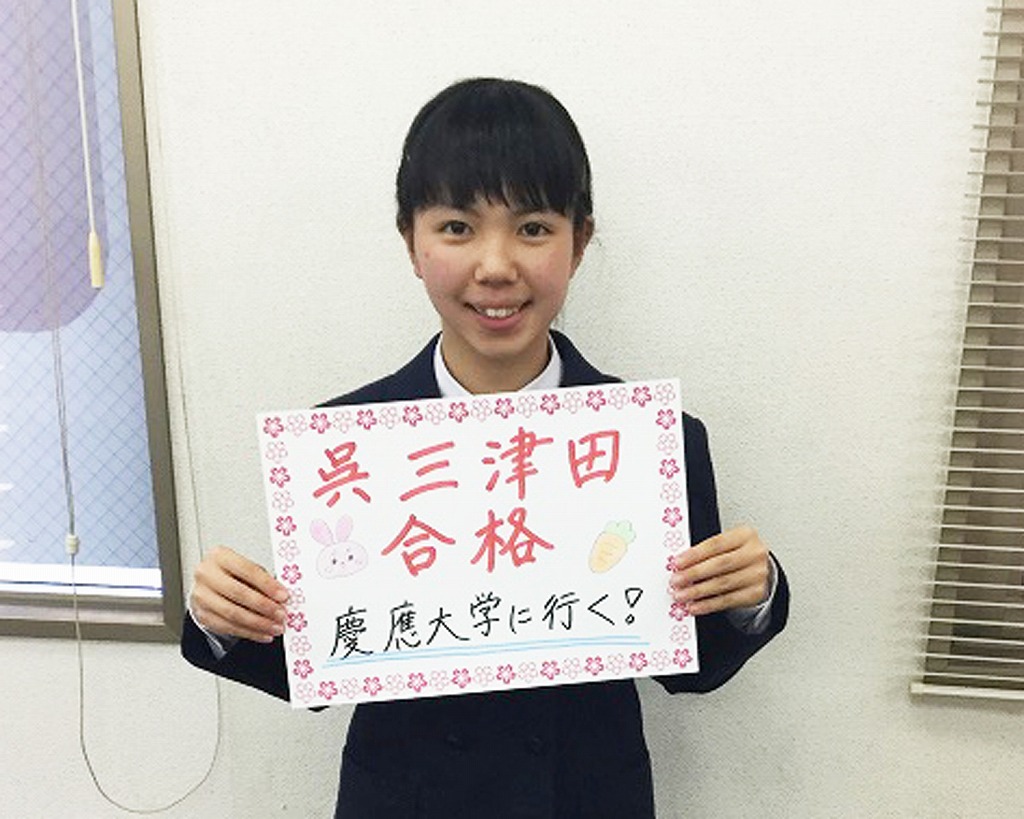 呉三津田
合格
慶應大学に行く!